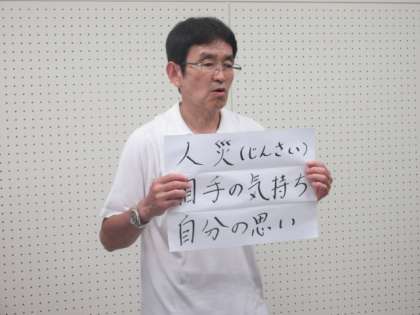 人災(じんさい)
相手の気持ち
自分の思い